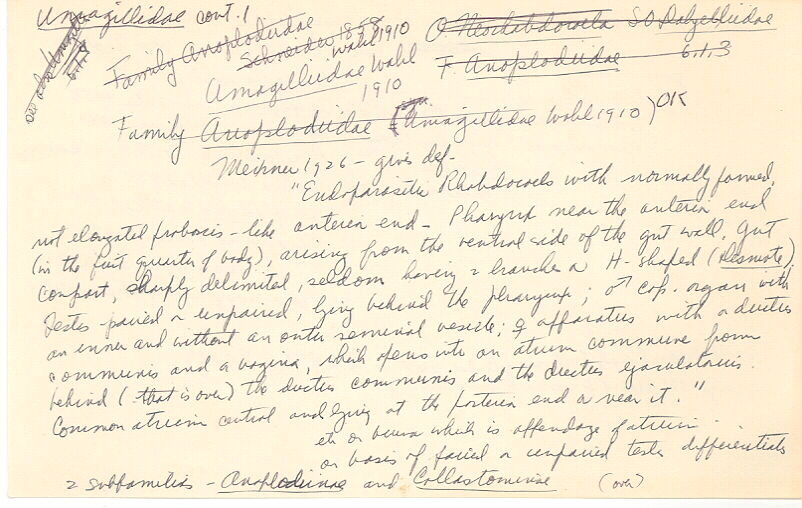 Umagillidae cont. 1
see also Umagill
6.1.2
Family Anoplodiidae
Schneider 1858
Wahl 1910
O. Neorhabdocoela SO Dalyelliidae
Umagillidae Wahl
1910
F. Anoplodiidae 6.1.3
Family Anoplodiidae (Umagillidae Wahl 1910) OK
Meixner 1926 - gives def-
"Endoparasitic Rhabdocoels with normally formed,
not elongated proboscis-like anterior end - Pharynx near the anterior end
(in the first quarter of body), arising from the ventral side of the gut wall. Gut
compact, sharply delimited, seldom having 2 branches or H-shaped (Desmote).
Testes paired or unpaired, lying behind the pharynx; ♂ cop. organs with
an inner and without an outer seminal vesicle; ♀ apparatus with a ductus
communis and a vagina, which opens into an atrium commune from
behind (that is over) the ductus communis and the ductus ejaculatorius.
Common atrium central and lying at the posterior end or near it."
or bursa which is appendage of atrium
on basis of paired or unpaired testes differentials
2 subfamilies - Anoplodiinae and Collastominae (over)